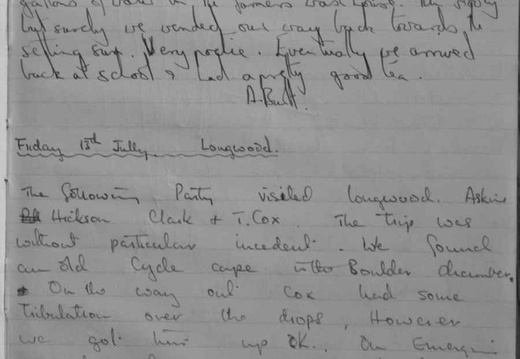 gallons of water in the farmers wash house. Slowly
but surely we wended our way back towards the
setting sun. Very poetic. Eventually we arrived
back at school & had a pretty good tea.
A. Butt.
Friday 13th July. Longwood.
The following Party visited Longwood. Askin
Hickson Clark + T. Cox. The trip was
without particular incedent. We found
an old Cycle cape in the Boulder chamber.
On the way out Cox had some
tribulation over the drops, However
we got him up OK. On Emergin